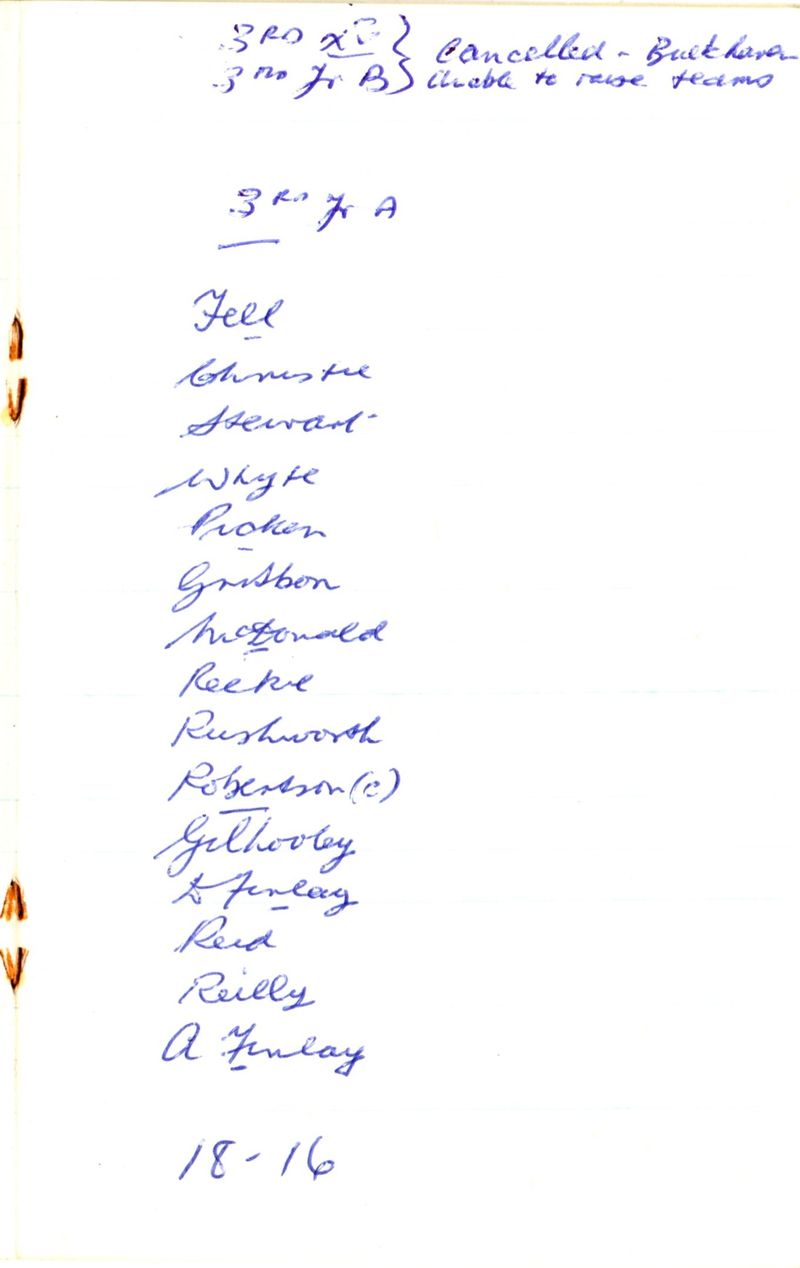 3RD XV } Cancelled - Buckhaven
3RD Yr B } Unable to raise teams
3RD Yr A
Fell
Christie
Stewart
Whyte
Picken
McDonald
Reekie
Rushworth
Robertson (c)
Gilhooley
D Finlay
Reid
Reilly
A Finlay
18-16